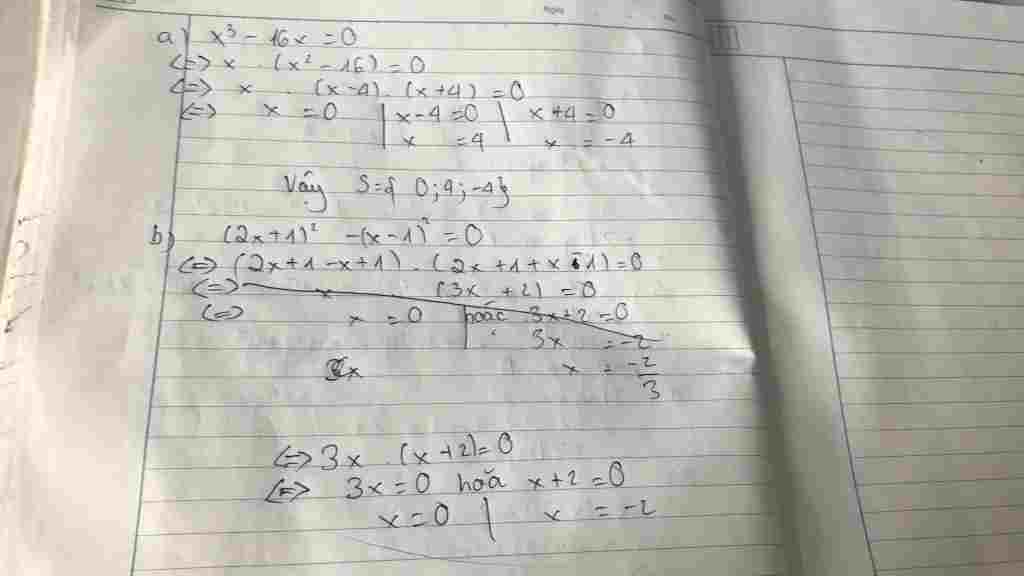 a) x³ - 16x = 0
<=> x . (x² - 16) = 0
<=> x . (x-4) . (x+4) = 0
<=> x = 0 | x-4 = 0 | x+4 = 0
x = 4 x = -4
Vậy S={ 0; 4; -4}
b) (2x+1)² - (x-1)² = 0
<=> (2x+1-x+1) . (2x+1+x-1) = 0
<=> x (3x +2) = 0
<=> x = 0 | hoặc 3x+2 = 0
3x = -2
x = -2/3
<=> 3x . (x+2) = 0
<=> 3x = 0 hoặ x+2 = 0
x = 0 | x = -2